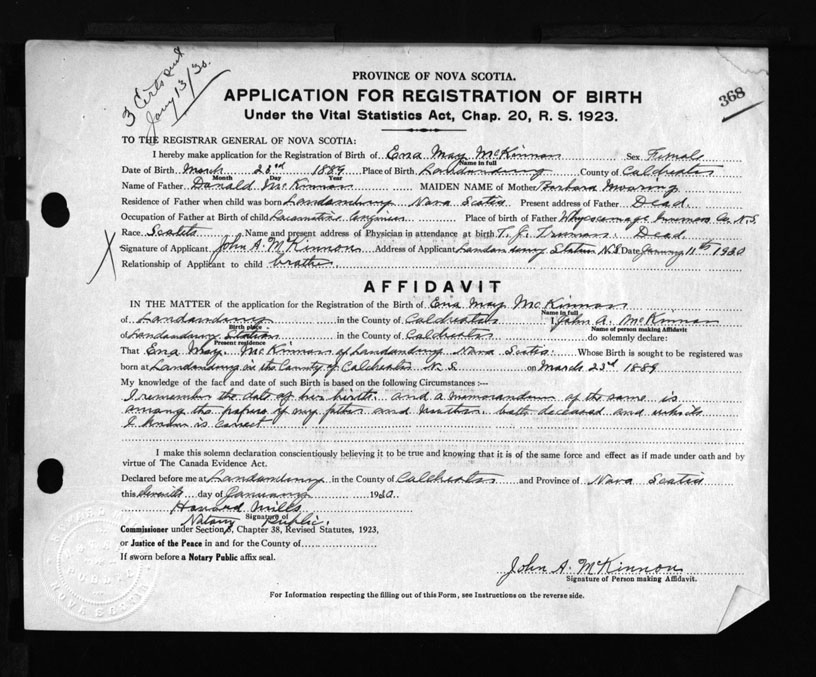 3 Certs sent
Jany 13/30.
368
PROVINCE OF NOVA SCOTIA.
APPLICATION FOR REGISTRATION OF BIRTH
Under the Vital Statistics Act, Chap. 20, R. S. 1923.
TO THE REGISTRAR GENERAL OF NOVA SCOTIA:
I hereby make application for the Registration of Birth of Ena May McKinnon Sex Female
Name in full
Date of Birth March 23rd 1889 Place of Birth County of Colchester
Month Day Year
Name of Father Donald McKinnon MAIDEN NAME of Mother Barbara
Residence of Father when child was born Londonderry Nova Scotia Present address of Father Dead.
Occupation of Father at Birth of child Locomotive Engineer Place of birth of Father Whycocomagh Inverness Co. N.S
Race. Scotch Name and present address of Physician in attendance at birth T. J. Dead.
Signature of Applicant John A. McKinnon Address of Applicant Londonderry Station N.S Date January 11th 1930
Relationship of Applicant to child brother.
AFFIDAVIT
IN THE MATTER of the application for the Registration of the Birth of Ena May McKinnon
Name in full
of Londonderry in the County of Colchester I, John A. McKinnon
Birth place Name of person making Affidavit
of Londonderry Station in the County of Colchester do solemnly declare:
Present residence
That Ena May McKinnon of Londonderry Nova Scotia. Whose Birth is sought to be registered was
born at Londonderry in the County of Colchester N. S on March 23rd 1889
My knowledge of the fact and date of such Birth is based on the following Circumstances :—
I remember the date of her birth. and a memorandum of the same is
among the papers of my father and mother. both deceased and which
I know is correct
I make this solemn declaration conscientiously believing it to be true and knowing that it is of the same force and effect as if made under oath and by
virtue of The Canada Evidence Act.
Declared before me at Londonderry in the County of Colchester and Province of Nova Scotia
this day of January 1930.
Howard Mills
Signature of
Notary Public.
Commissioner under Section 8, Chapter 38, Revised Statutes, 1923,
or Justice of the Peace in and for the County of
If sworn before a Notary Public affix seal.
John A. McKinnon
Signature of Person making Affidavit.
For Information respecting the filling out of this Form, see Instructions on the reverse side.